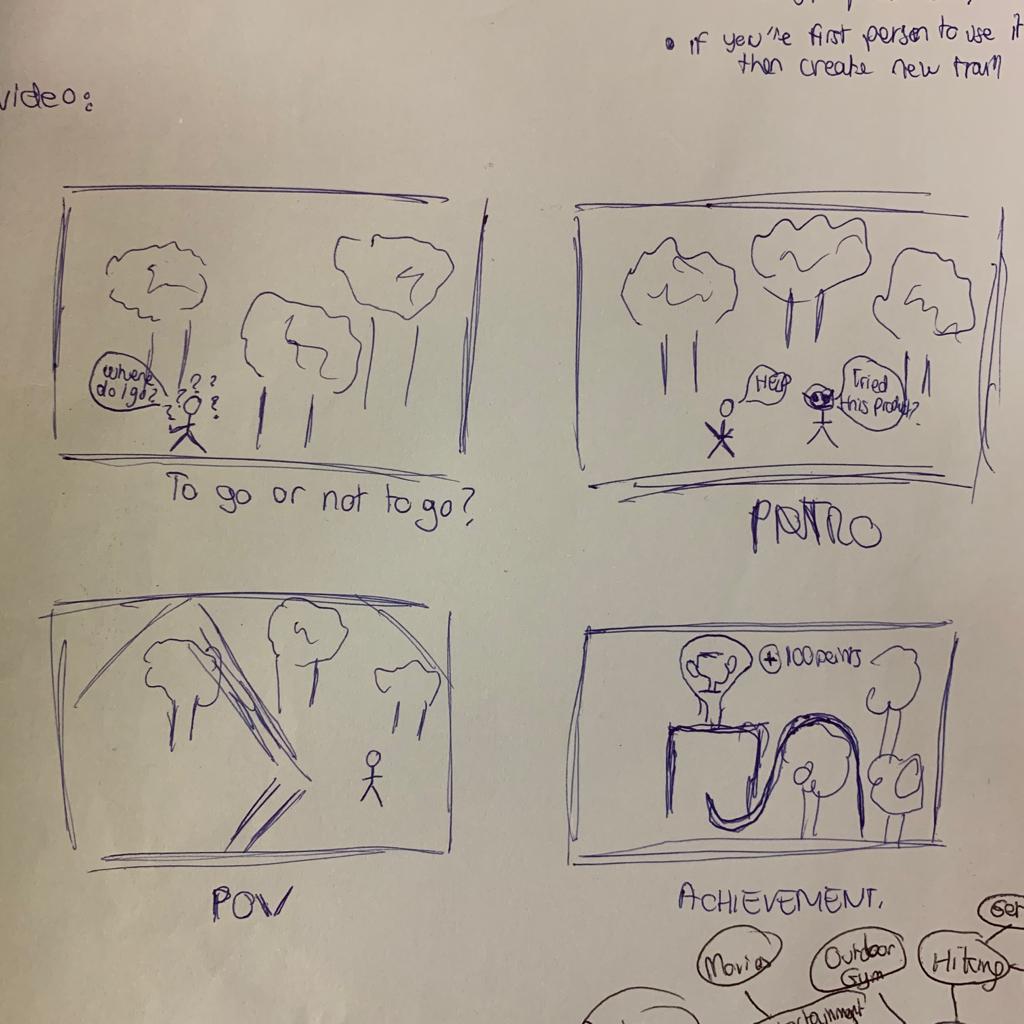 • if you're first person to use it
then create new trail
video:
where
do I go?
? ? ? ? ?
To go or not to go?
HELP
Tried
this product?
INTRO
POV
+ 100 points
ACHIEVEMENT.
Movies
Outdoor
Gym
Hiking